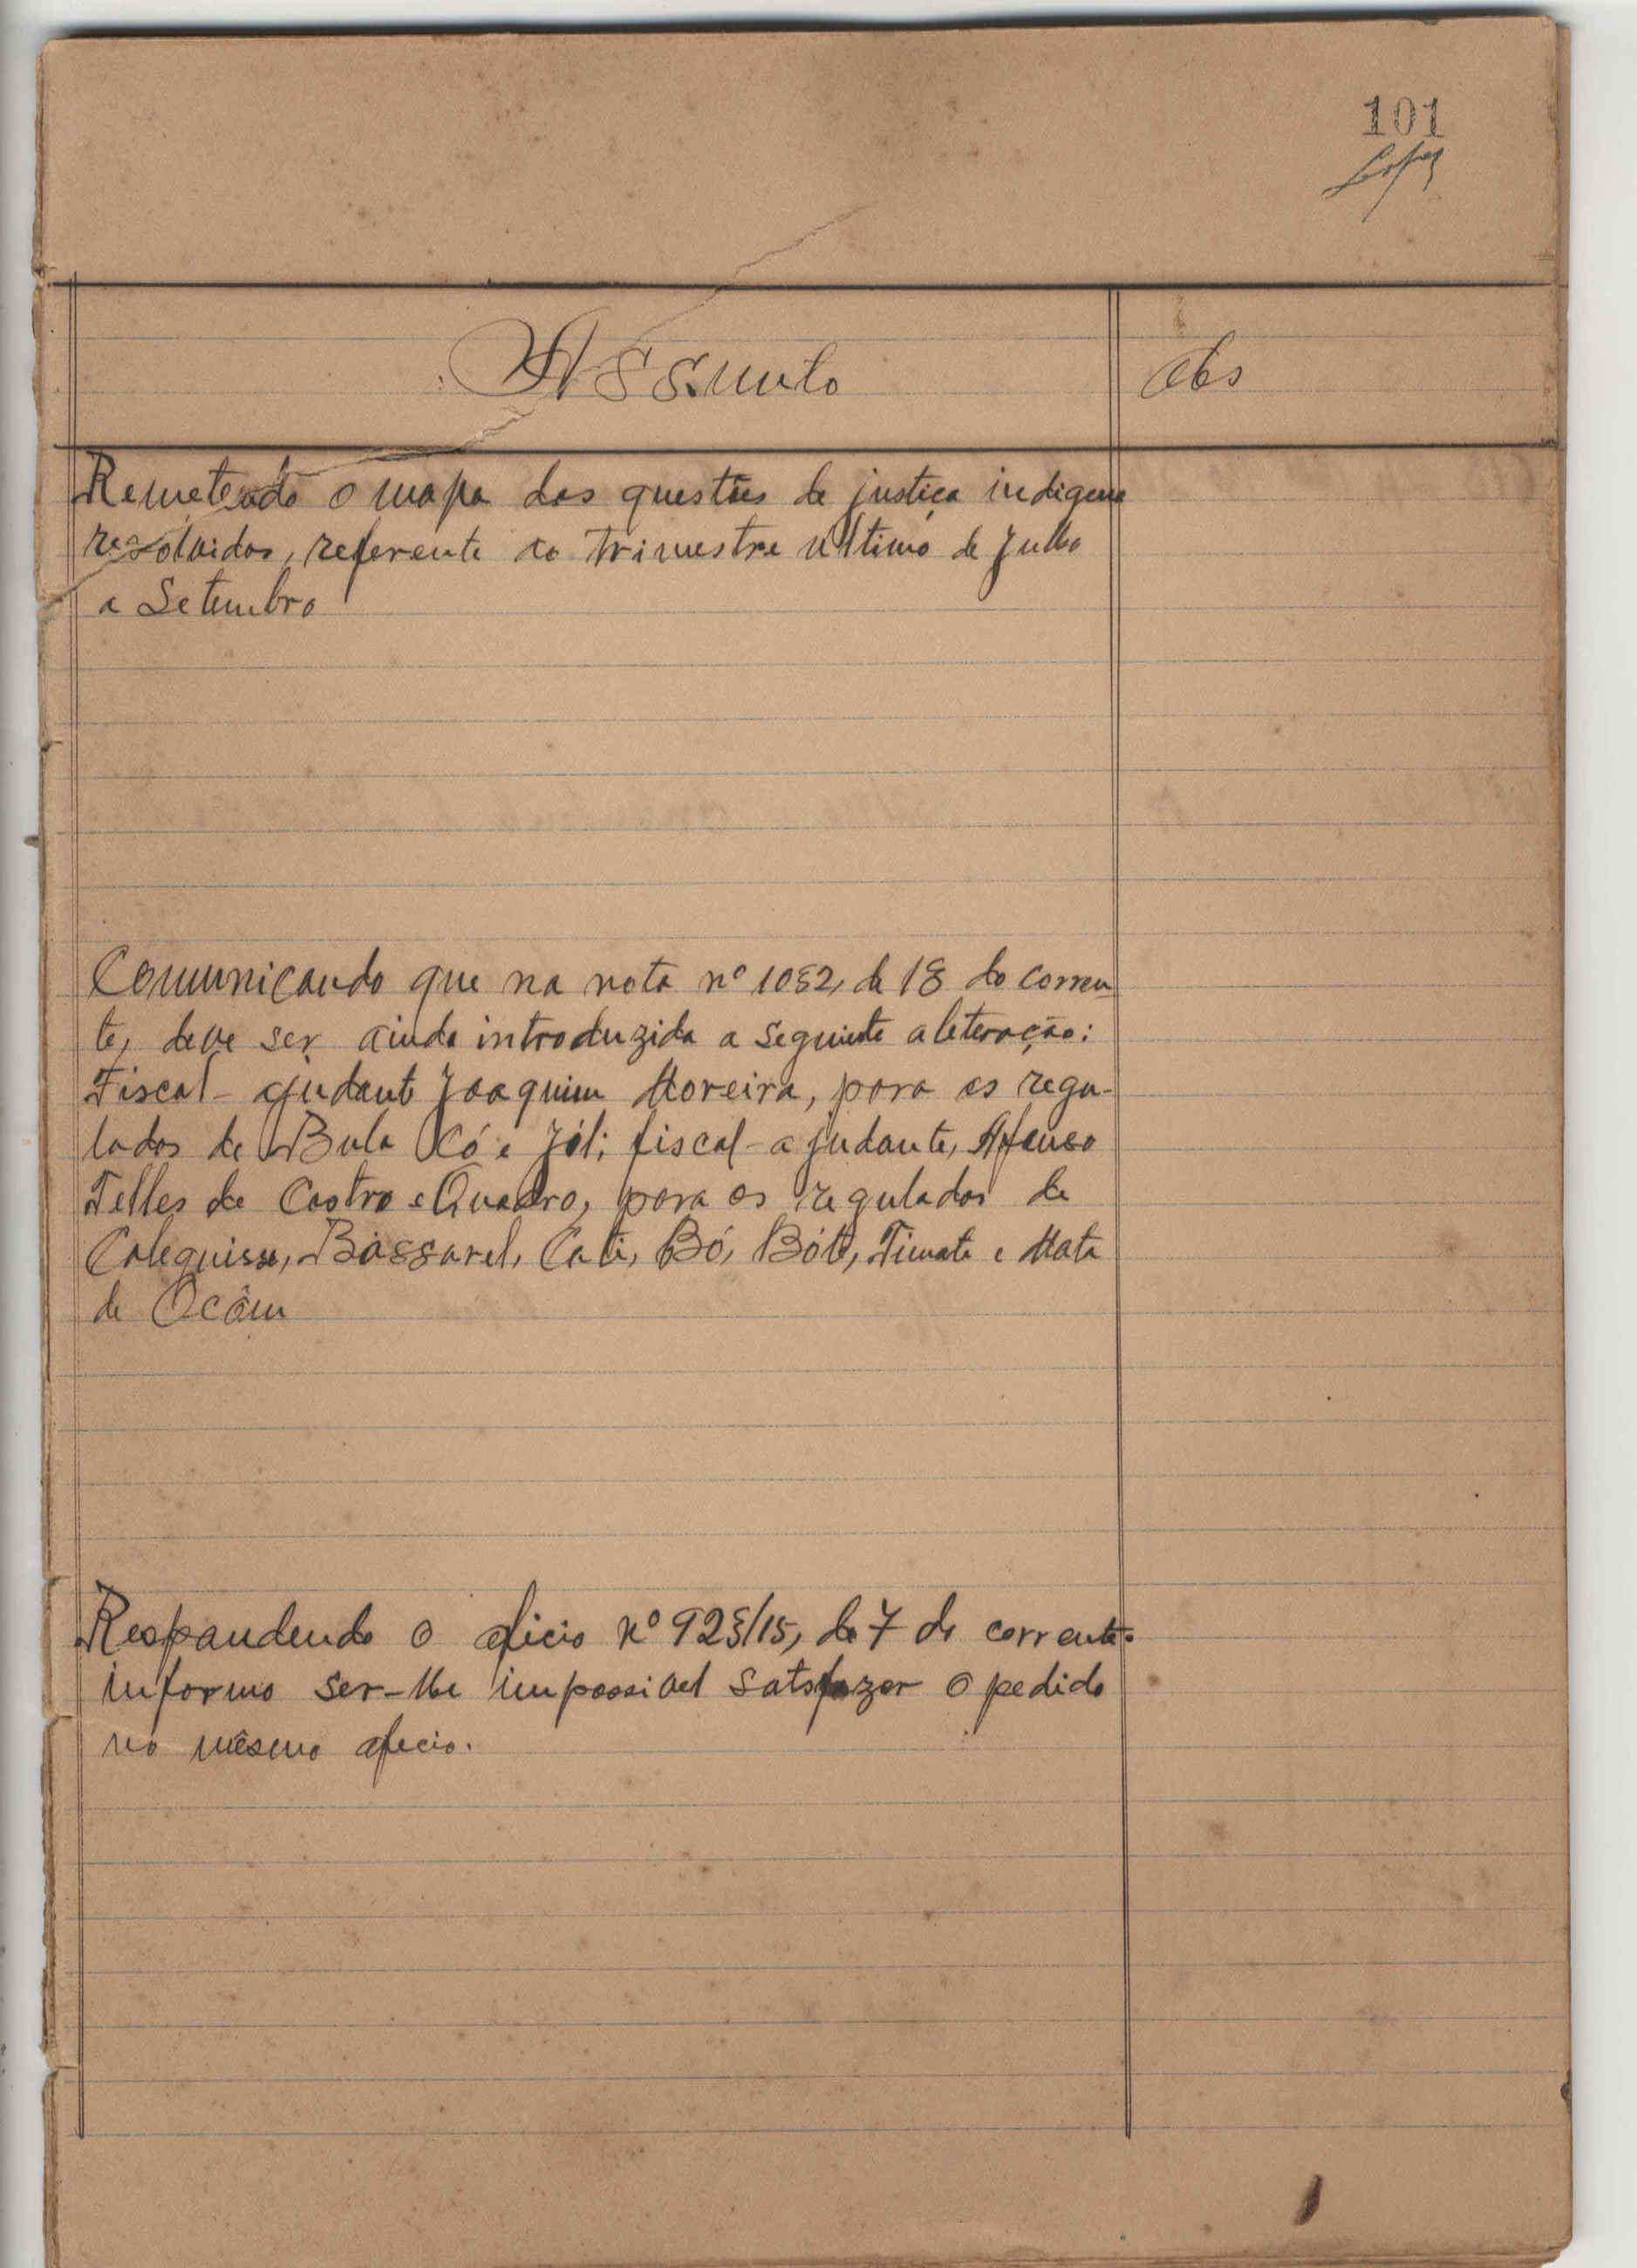 101
Lopes
Assunto
Obs
Remetendo o mapa das questões de justiça indigena
resolvidas, referente ao trimestre ultimo de Julho
a Setembro
Comunicando que na nota nº 1082, de 18 do corren-
te, deve ser ainda introduzida a seguinte aleteração:
Fiscal-ajudante Joaquim Moreira, para os regu-
lados de Bula Có e Jól; fiscal-ajudante, Afonso
Telles de Castro e Quadro, para os regulados de
Calequisse, Bassarel, Cati, Bó, Bóte, Timate e Mata
de Ocôm
Respondendo o oficio nº 925/15, de 7 do corrente.
informo ser-lhe impossivel satsfazer o pedido
no mêsmo oficio.